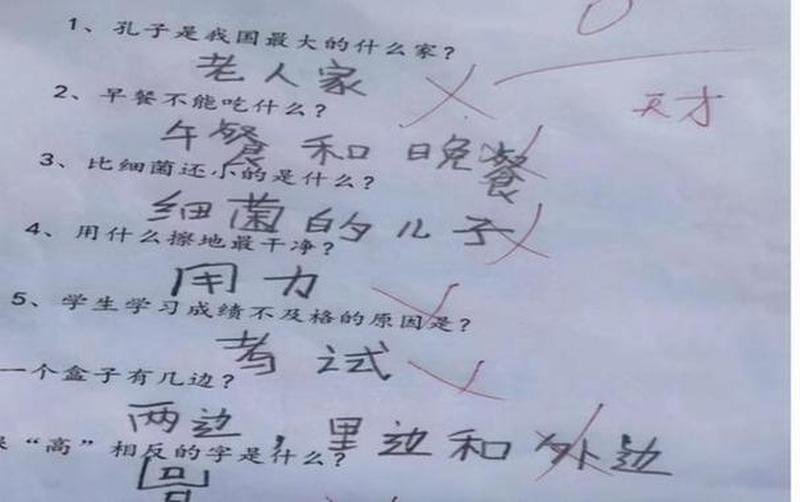 1、孔子是我国最大的什么家？
老人家
0
天才
2、早餐不能吃什么？
午餐和晚餐
3、比细菌还小的是什么？
细菌的儿子
4、用什么擦地最干净？
用力
5、学生学习成绩不及格的原因是？
考试
一个盒子有几边？
两边，里边和外边
“高”相反的字是什么？